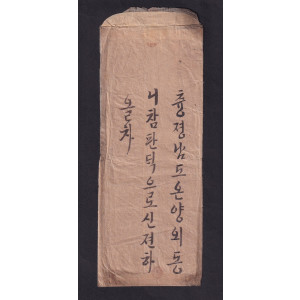 충청남도온양외동
니참판댁으로신젼하
올차